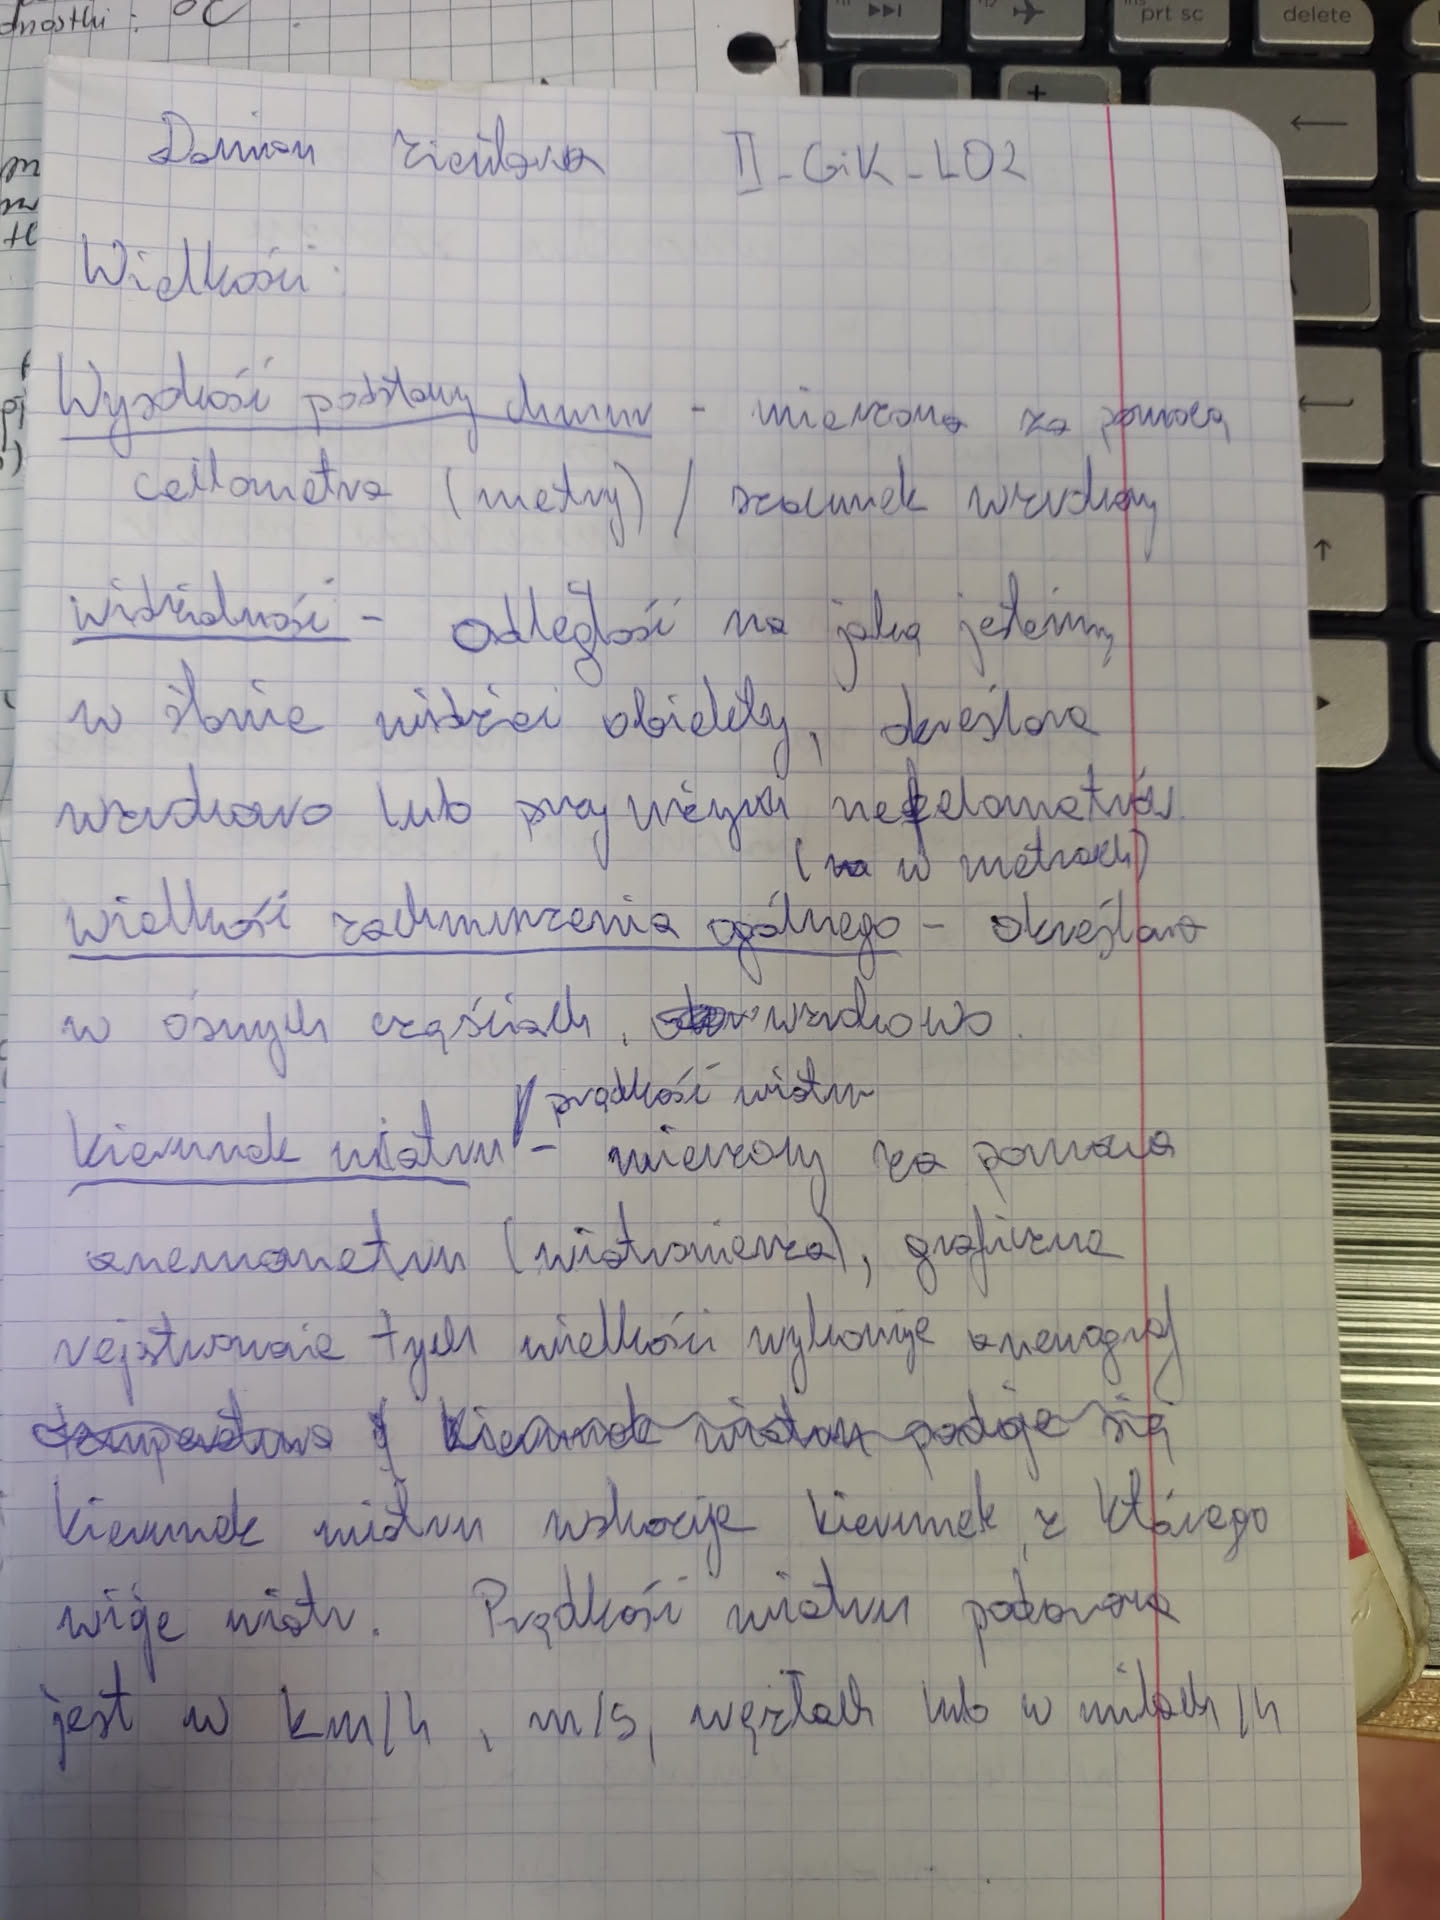 dnostki: °C
prt sc
delete
Damian II-GiK-LO2
Wielkości:
Wysokość podstawy chmur - mierzona za pomocą
ceilometra (metry) / szacunek wzrokowy
widzialność - odległość na jaką jesteśmy
w stanie widzieć obiekty, określana
wzrokowo lub przy użyciu nefelometrów
(w metrach)
wielkość zachmurzenia ogólnego - określana
w ósmych częściach, wzrokowo.
/ prędkość wiatru
kierunek wiatru - mierzony za pomocą
anemometru (wiatromierza), graficzne
rejstrowanie tych wielkości wykonuje anemograf
temperatura Kierunek wiatru podaje się
kierunek wiatru wskazuje kierunek, z którego
wieje wiatr. Prędkość wiatru podawana
jest w km/h, m/s, węzłach lub w milach/h